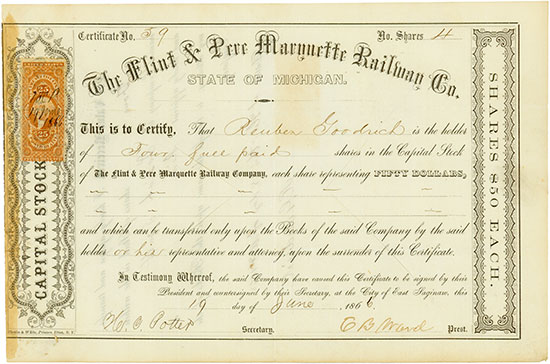 Certificate No. 59 No. Shares 4
The Flint & Pere Marquette Railway Co.
STATE OF MICHIGAN.
This is to Certify, That Reuben Goodrich is the holder
of Four full paid shares in the Capital Stock
of The Flint & Pere Marquette Railway Company, each share representing FIFTY DOLLARS,
and which can be transferred only upon the Books of the said Company by the said
holder or his representative and attorney, upon the surrender of this Certificate.
In Testimony Whereof, the said Company have caused this Certificate to be signed by their
President and countersigned by their Secretary, at the City of East Saginaw, this
19 day of June 1866
H. C. Potter Secretary. E B Ward Prest.
CAPITAL STOCK
SHARES $50 EACH.
25 25